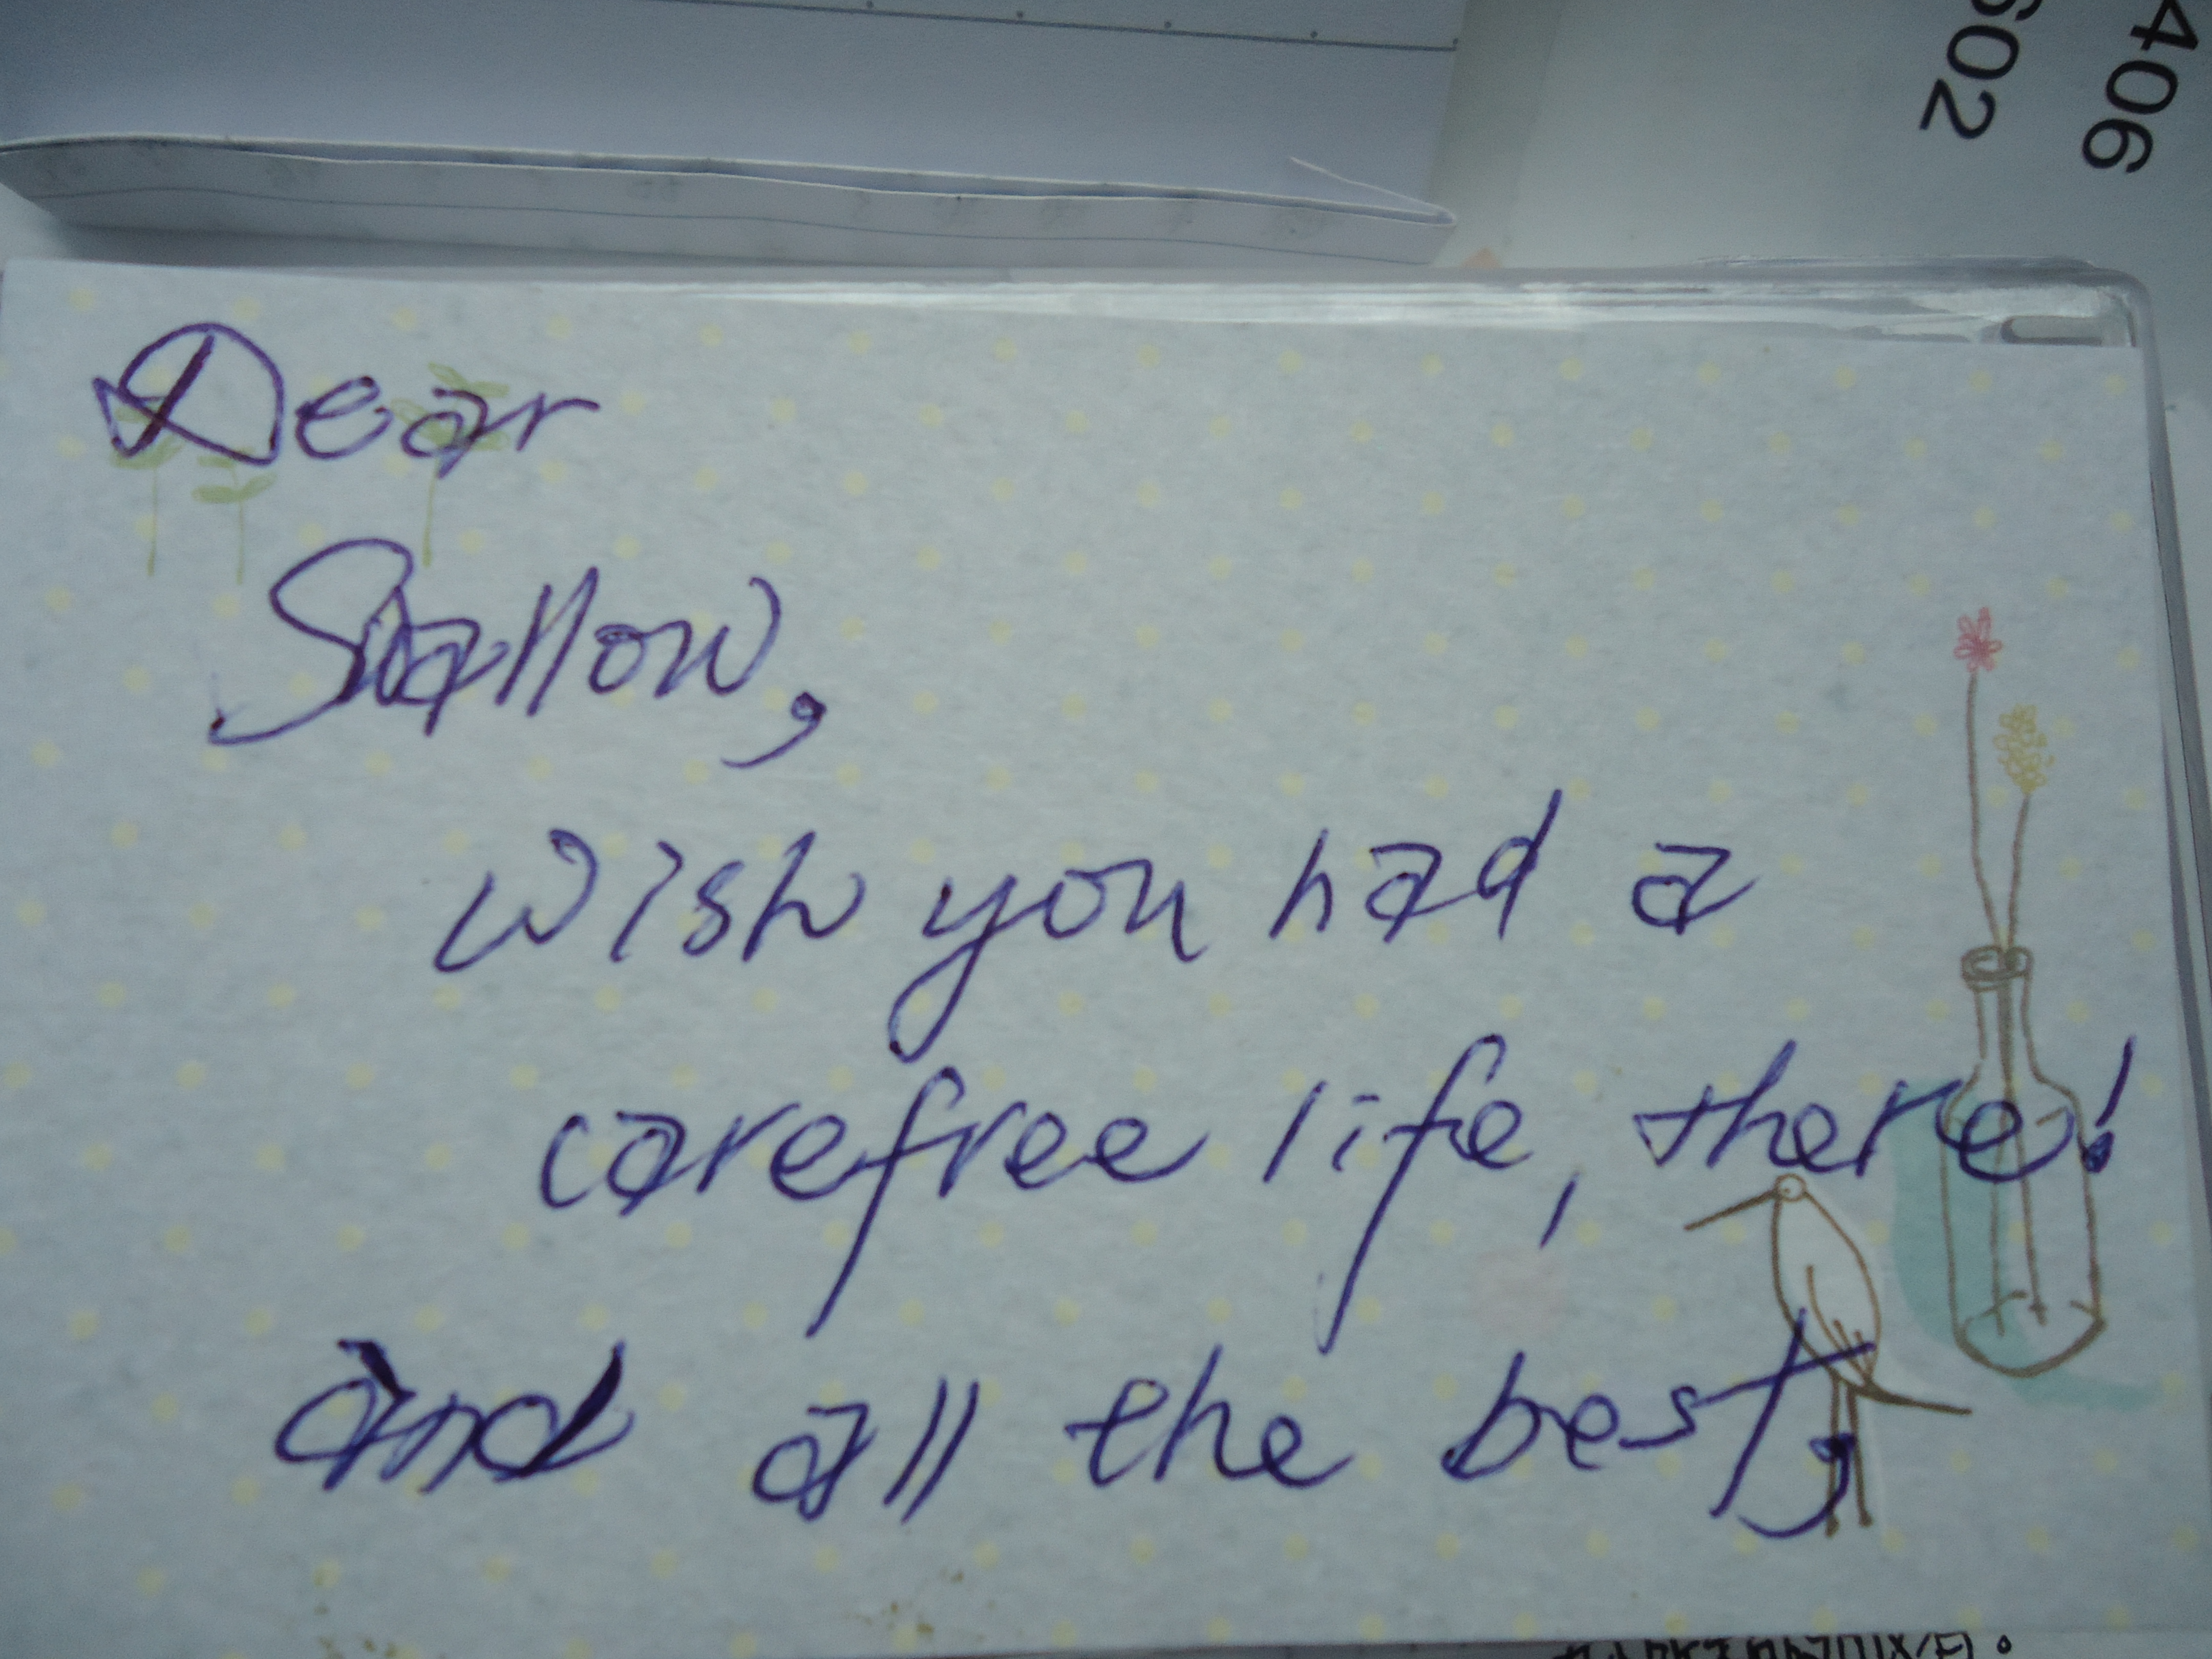 602
406
Dear
Swallow,
wish you had a
carefree life, there!
and all the best,